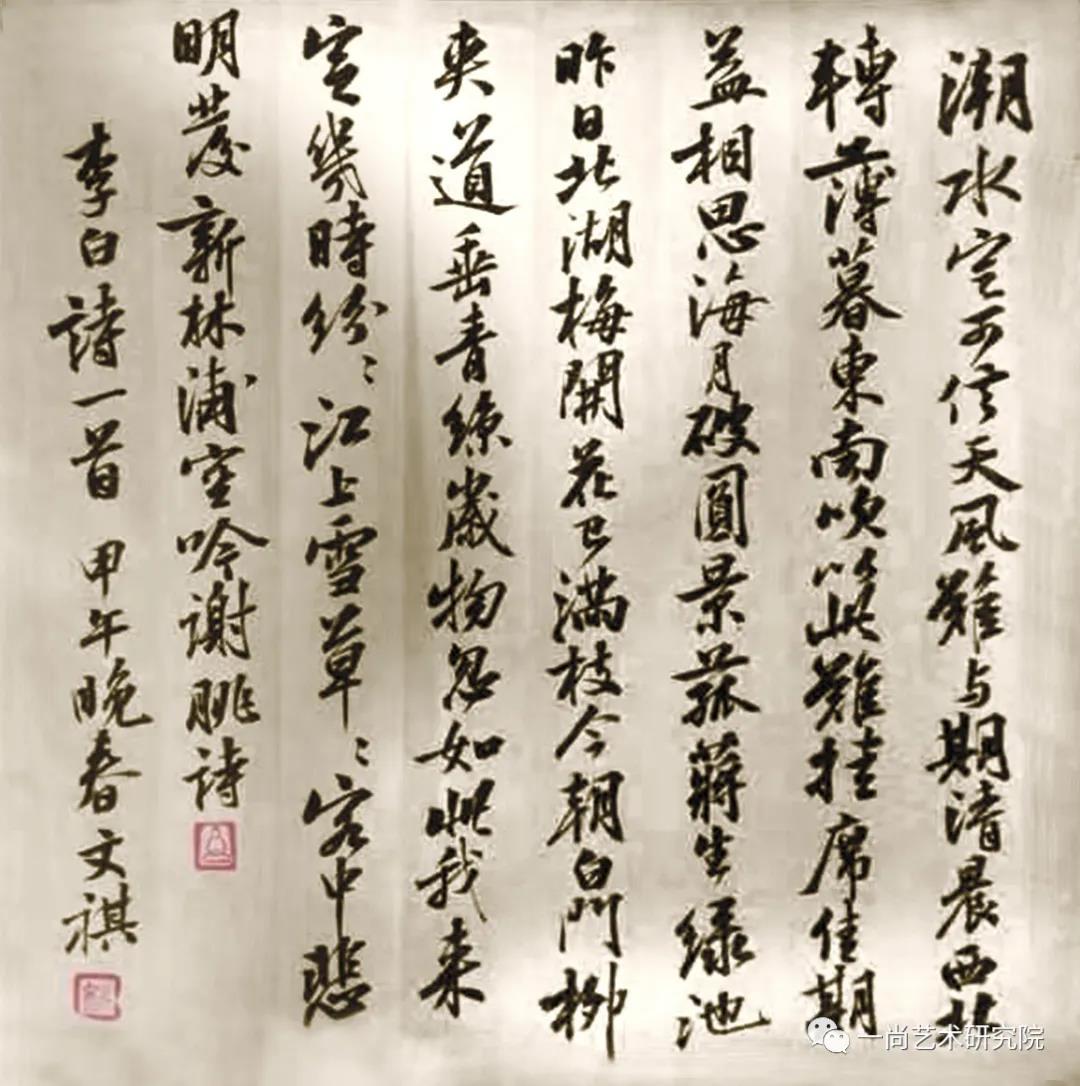 潮水定可信天風難与期清晨西北
轉薄暮東南吹以此難挂席佳期
益相思海月破圓景菰蔣生緑池
昨日北湖梅開花已満枝今朝白門柳
夾道垂青絲歲物忽如此我来
定幾時紛〻江上雪草〻客中悲
明發新林浦空吟謝朓詩
李白詩一首 甲午晚春文祺
一尚艺术研究院